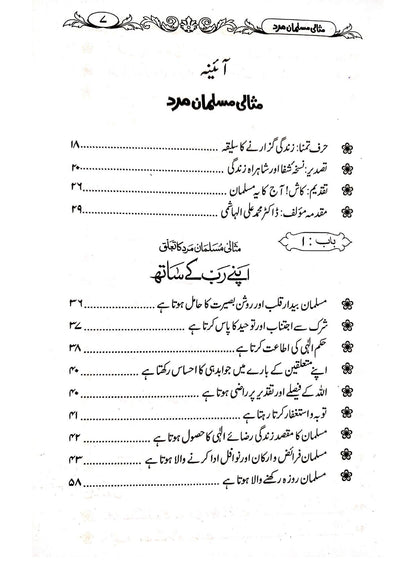 مثالی مسلمان مرد
۷
آئینہ
مثالی مسلمان مرد
حرف تمنا: زندگی گزارنے کا سلیقہ ........ ۱۸
تصدیر: نسخۂ شفا اور شاہراہ زندگی ........ ۲۰
تقدیم: کاش! آج کا یہ مسلمان ........ ۲۶
مقدمہ مؤلف: ڈاکٹر محمد علی الہاشمی ........ ۲۹
باب: ۱
مثالی مسلمان مرد کا تعلق
اپنے رب کے ساتھ
مسلمان بیدار قلب اور روشن بصیرت کا حامل ہوتا ہے ........ ۳۶
شرک سے اجتناب اور توحید کا پاس کرتا ہے ........ ۳۷
حکم الٰہی کی اطاعت کرتا ہے ........ ۳۸
اپنے متعلقین کے بارے میں جوابدہی کا احساس رکھتا ہے ........ ۴۰
اللہ کے فیصلے اور تقدیر پر راضی ہوتا ہے ........ ۴۰
توبہ و استغفار کرتا رہتا ہے ........ ۴۱
مسلمان کا مقصد زندگی رضائے الٰہی کا حصول ہوتا ہے ........ ۴۲
مسلمان فرائض و ارکان اور نوافل ادا کرنے والا ہوتا ہے ........ ۴۳
مسلمان روزہ رکھنے والا ہوتا ہے ........ ۵۸